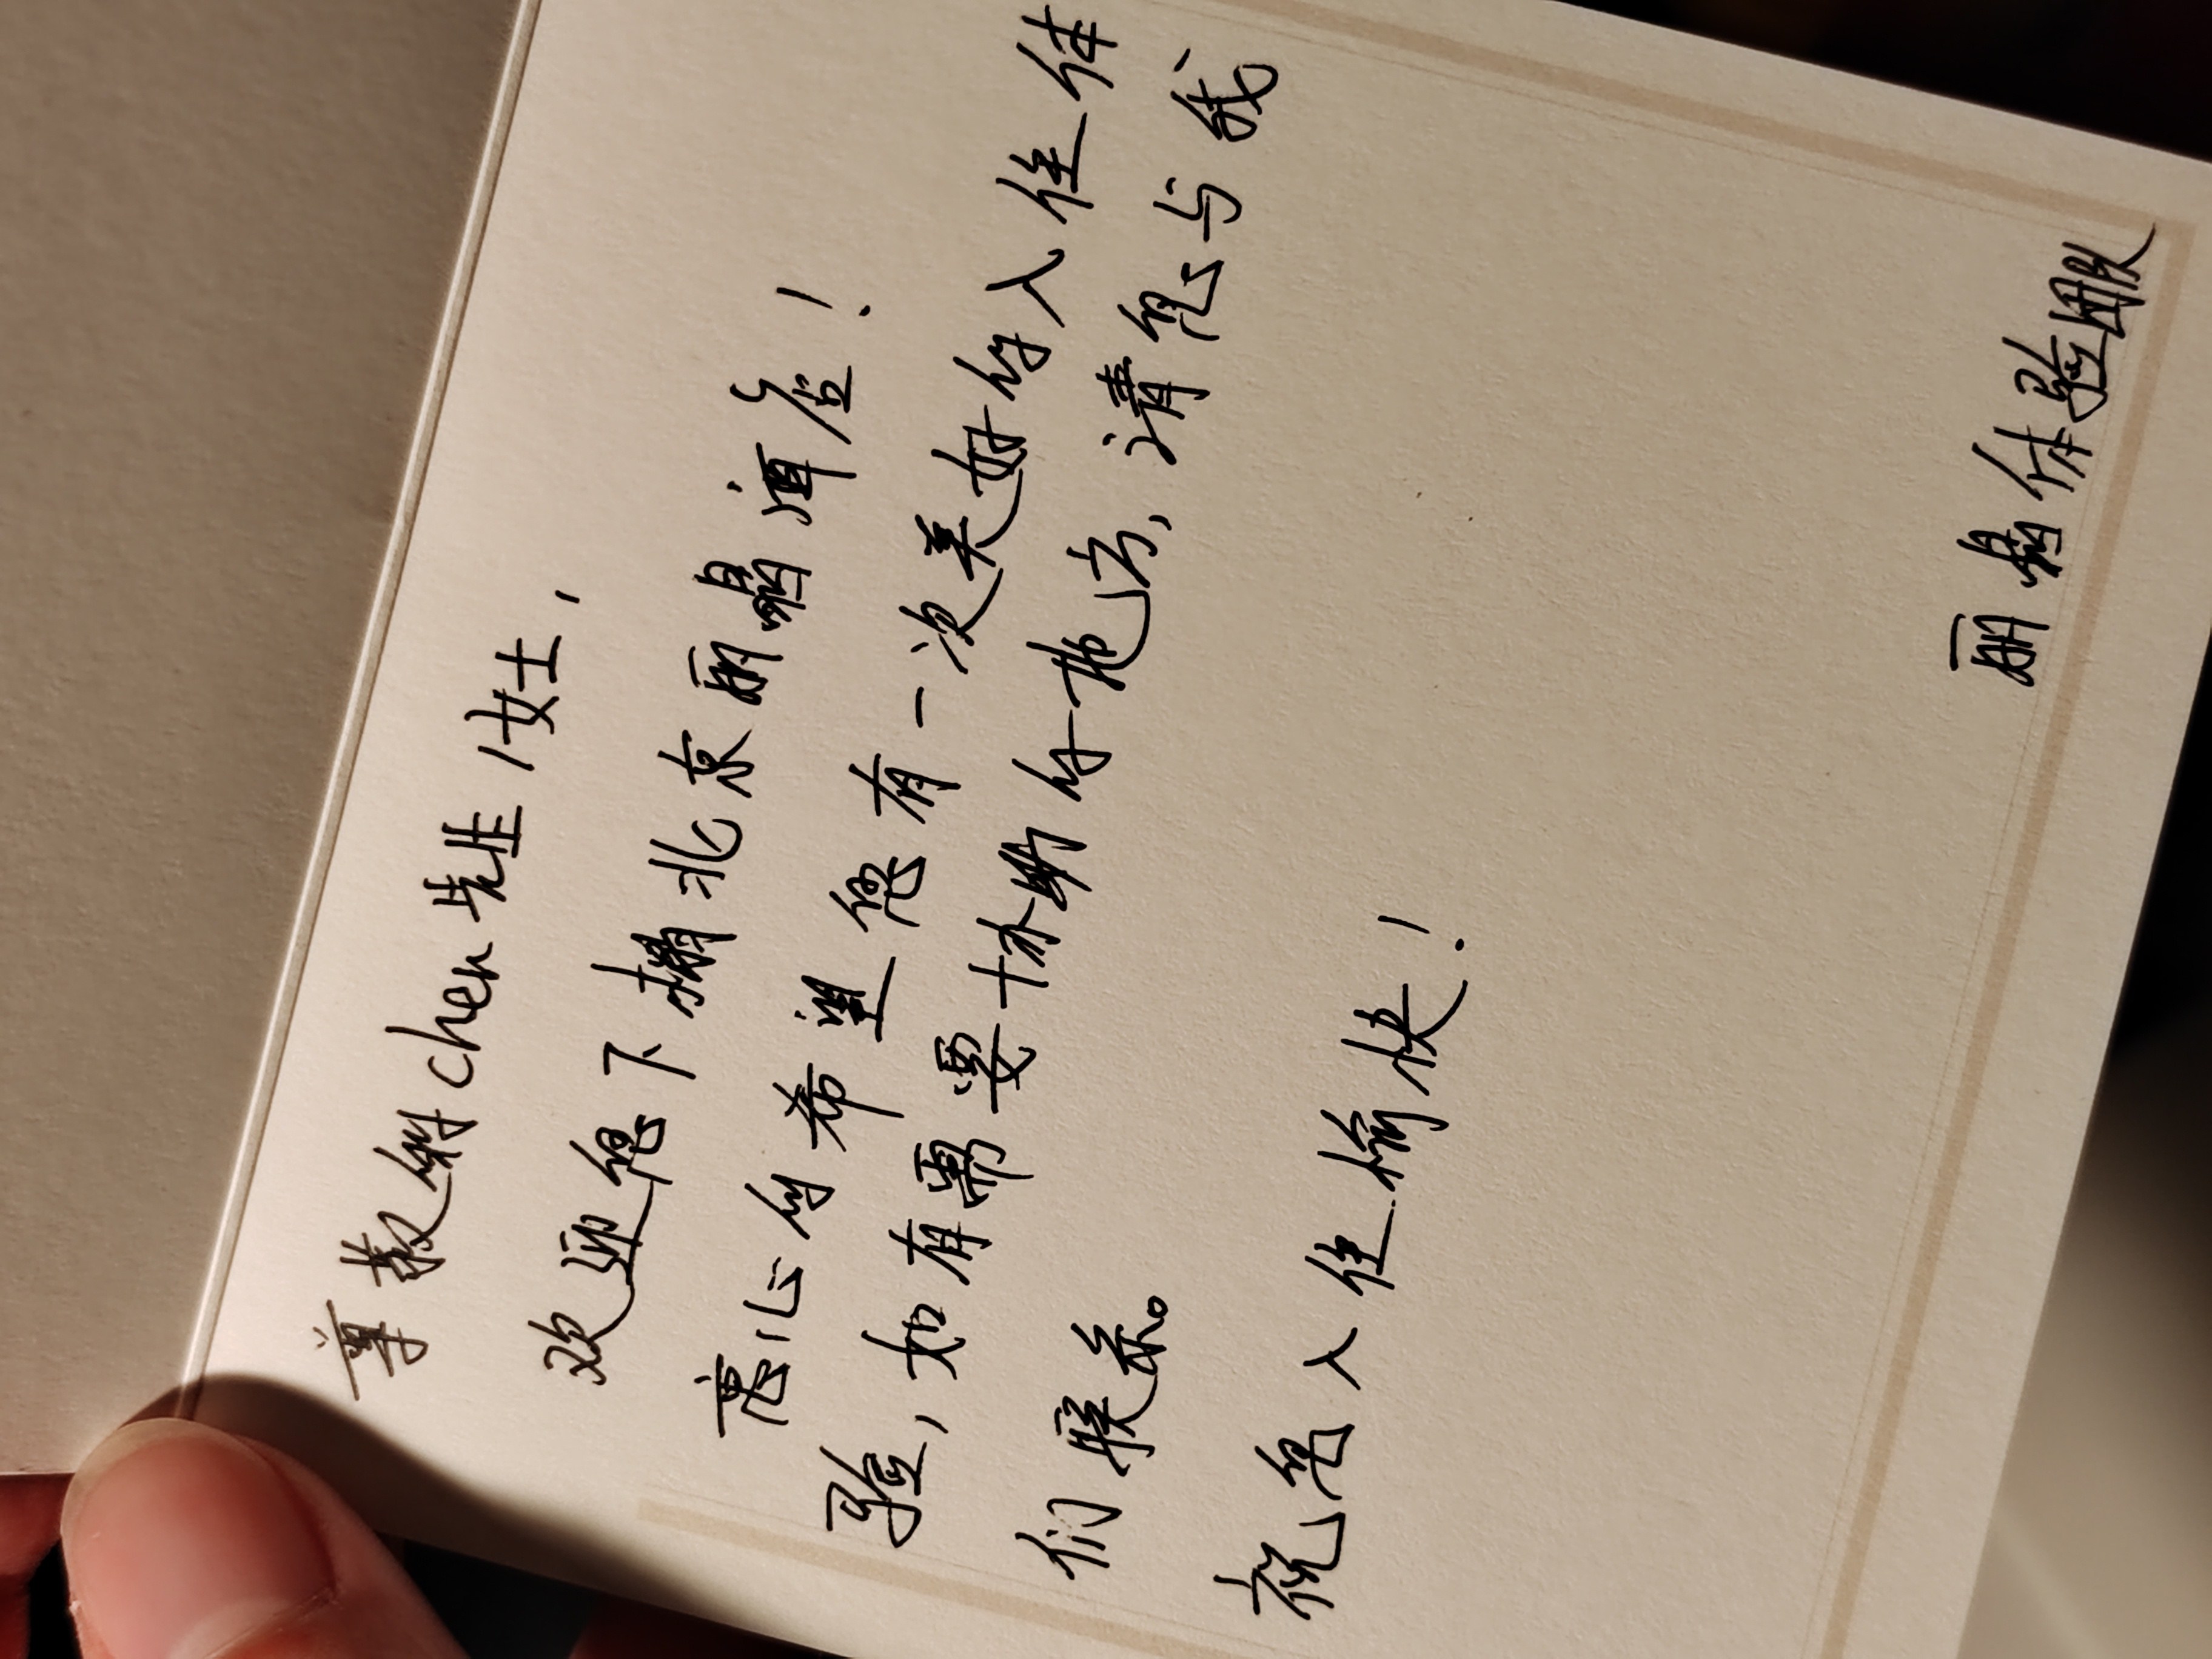 尊敬的Chen先生/女士，
欢迎您下榻北京丽晶酒店！
衷心的希望您有一次美好的入住体
验，如有需要协助的地方，请您与我
们联系。
祝您入住愉快！
丽晶体验